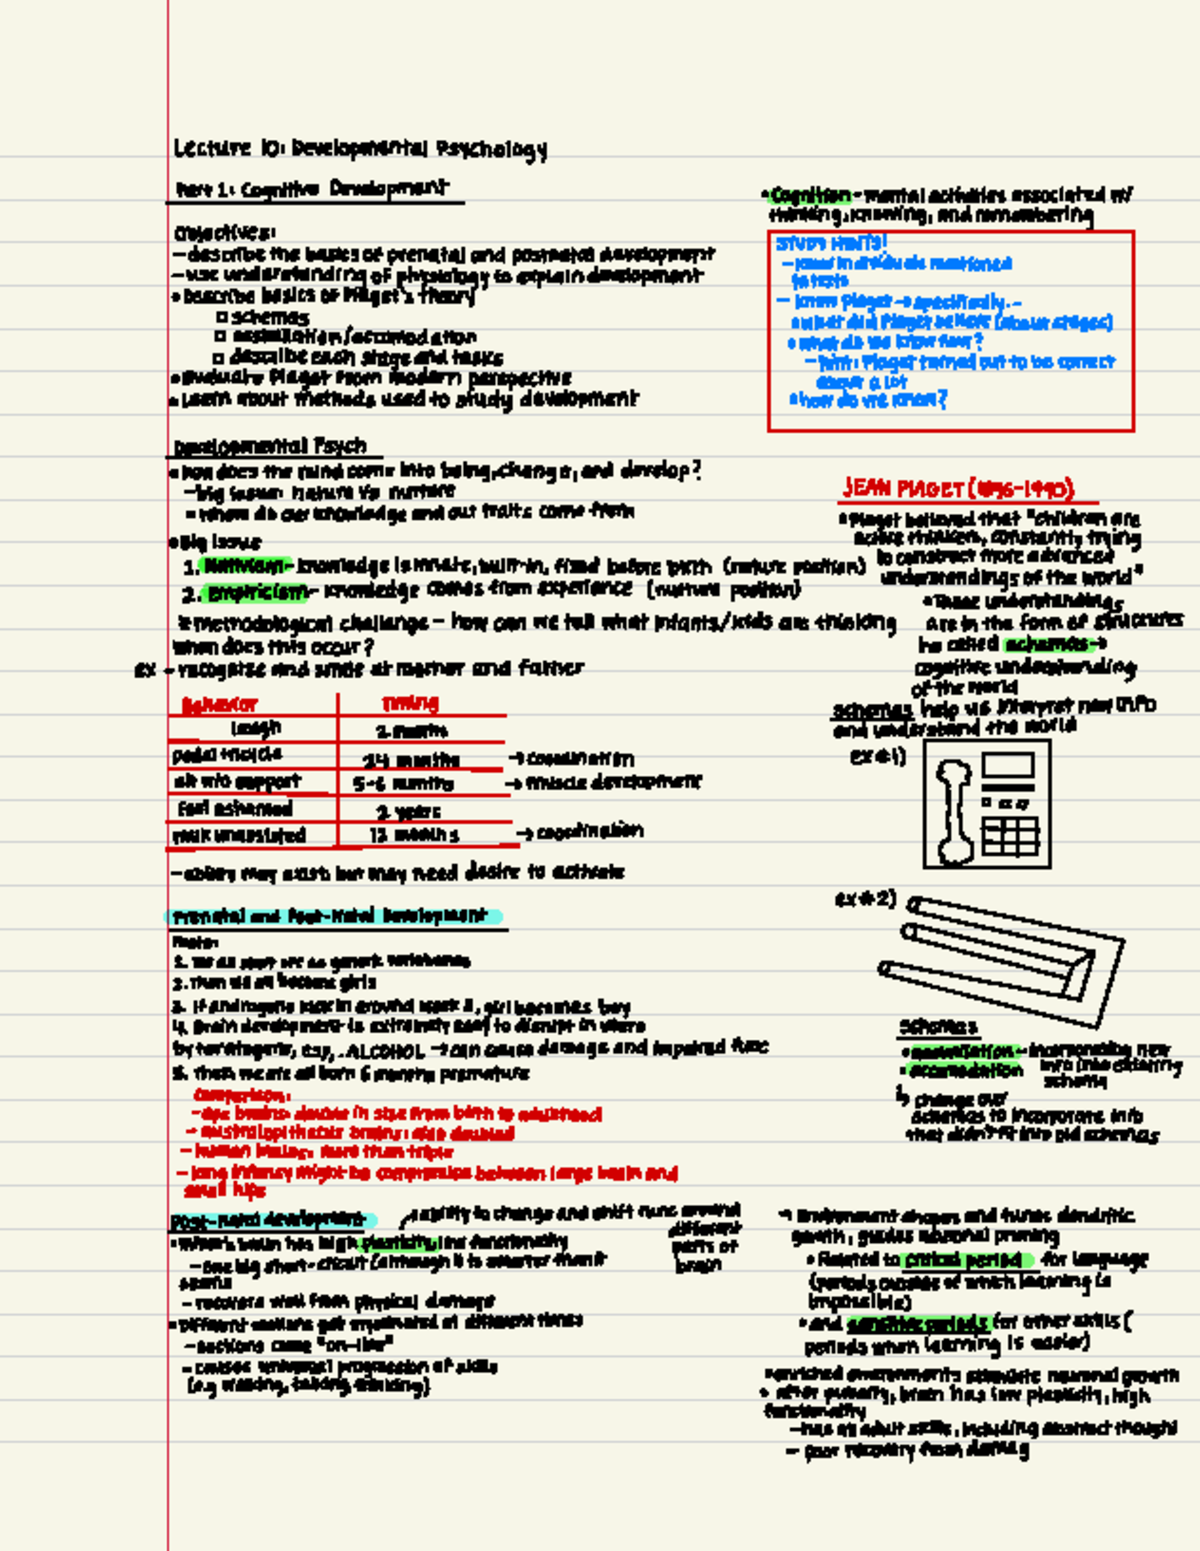 Lecture 10: Developmental Psychology
Part 1: Cognitive Development
Objectives:
- describe the basics of prenatal and postnatal development
- use understanding of physiology to explain development
• Describe basics of Piaget's theory
schemas
assimilation/accomodation
describe each stage and tasks
• evaluate Piaget from modern perspective
• Learn about methods used to study development
Developmental Psych
• how does the mind come into being, change, and develop?
- big issue: nature vs nurture
• where do our knowledge and our traits come from
• Big issue
1. Nativism - knowledge is innate, built-in, fixed before birth (nature position)
2. Empiricism - knowledge comes from experience (nurture position)
* methodological challenge - how can we tell what infants/kids are thinking
when does this occur?
ex - recognize and smile at mother and father
Behavior Timing
laugh 2 months
pedal tricycle 24 months → coordination
sit w/o support 5-6 months → muscle development
feel ashamed 2 years
walk unassisted 12 months → coordination
- ability may exist but may need desire to activate
Prenatal and Post-Natal Development
1. We all start off as generic vertebrates
2. Then we all become girls
3. If androgens kick in around week 8, girl becomes boy
4. Brain development is extremely easy to disrupt in utero
by teratogens, esp. ALCOHOL → can cause damage and impaired func
5. Then we are all born 6 months premature
Comparison:
- ape brains: double in size from birth to adulthood
- australopithecus brains: also doubled
- human brains: more than triple
- long infancy might be compromise between large brain and
small hips
Post-natal development
ability to change and shift func around
different
parts of
brain
brain has high plasticity, low functionality
- one big short-circuit (although it is smarter than it
seems
- recovers well from physical damage
• Different sections get myelinated at different times
- sections come "on-line"
- causes universal progression of skills
(e.g walking, talking, thinking)
• Cognition - mental activities associated w/
thinking, knowing, and remembering
STUDY HINTS!
- know individuals mentioned
in texts
- know Piaget → specifically -
• what did Piaget believe (about stages)
• what do we know now?
- hint: Piaget turned out to be correct
about a lot
• how do we know?
JEAN PIAGET (1896-1980)
• Piaget believed that "children are
active thinkers, constantly trying
to construct more advanced
understandings of the world"
• These understandings
are in the form of structures
he called schemas →
cognitive understanding
of the world
schemas help us interpret new info
and understand the world
ex #1)
ex #2)
Schemas
• assimilation - incorporating new
info into existing
schema
• accomodation
↳ change our
schemas to incorporate info
that didn't fit into old schemas
→ Environment shapes and tunes dendritic
growth, guides neuronal pruning
• Related to critical period for language
(periods outside of which learning is
impossible)
• and sensitive periods for other skills (
periods when learning is easier)
enriched environments stimulate neuronal growth
• after puberty, brain has low plasticity, high
functionality
- has all adult skills, including abstract thought
- poor recovery from damag